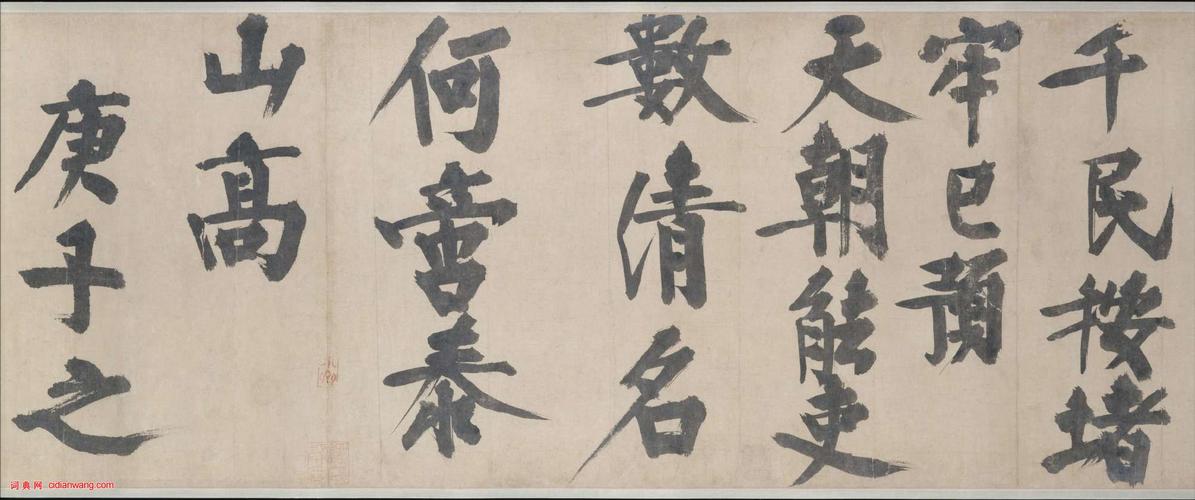 千民按堵
牢已預
天朝能吏
數清名
何啻泰
山高
庚子之
词典网 cidianwang.com